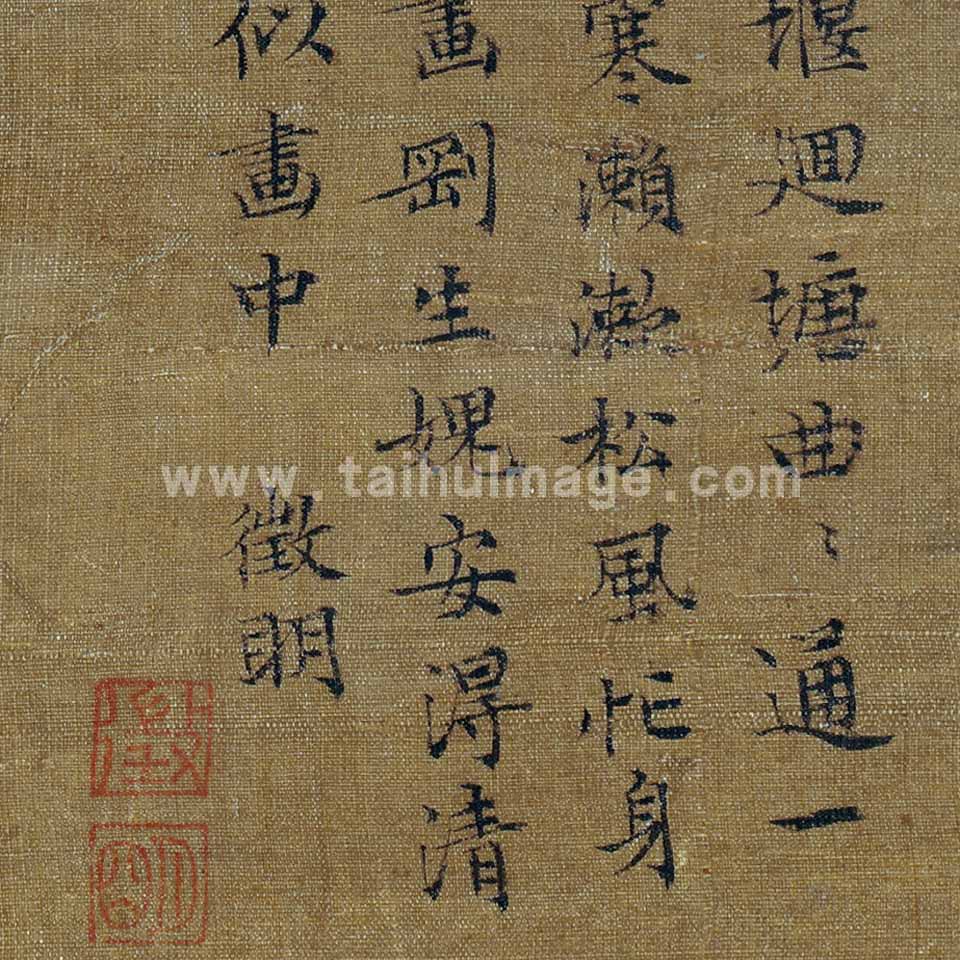 堰廻塘曲〻通一
寒瀨潄松風忙身
畫剛生媿安淂清
似畫中
徵明
徵
明
www.taihuImage.com